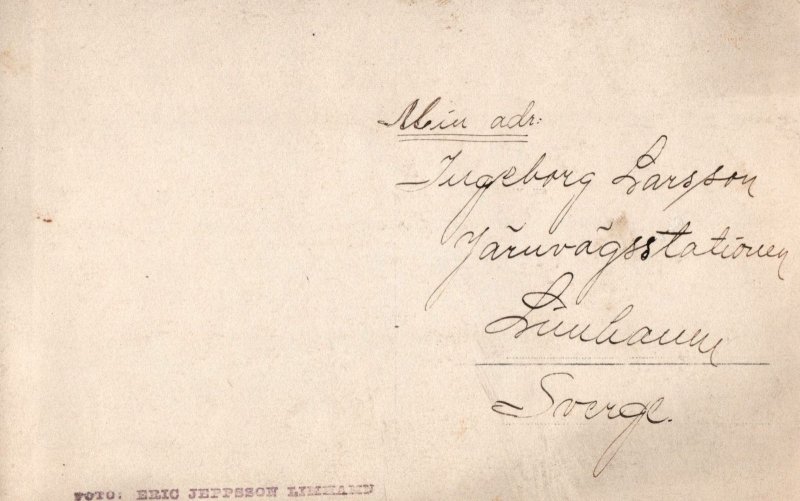 Min adr:
Ingeborg Larsson
Järnvägsstationen
Limhamn
Sverge.
FOTO: ERIC JEPPSSON LIMHAMN